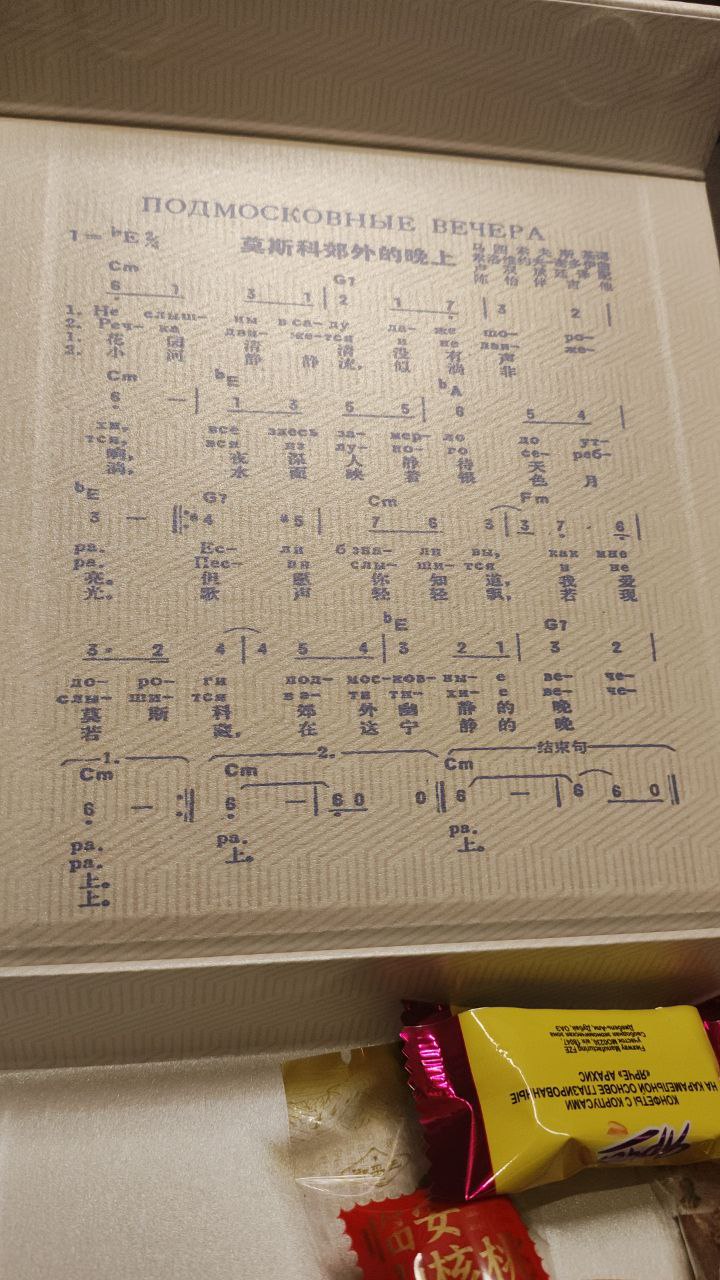 ПОДМОСКОВНЫЕ ВЕЧЕРА
1=♭E 2/4
莫斯科郊外的晚上
Cm G7
6 1 3 1 | 2 1 7 | 3 2 |
1. Не слыш- ны в са- ду да- же шо- ро-
2. Реч- ка дви- же-тся и не дви- же-
1. 花 园 清 清 没 有 声
2. 小 河 静 静 流， 似 淌 非
Cm ♭E ♭A
6 — | 1 3 5 5 | 6 5 4 |
хи, все здесь за- мер- ло до ут-
тся, вся из лу- но- го се- реб-
响， 夜 深 人 静 待 天
淌， 水 面 映 着 银 色 月
♭E G7 Cm Fm
3 — 4 #5 | 7 6 3 | 3 7 · 6 |
ра. Ес- ли б зна- ли вы, как мне
ра. Пес- ня слы- ши- тся и не
亮。 但 愿 你 知 道， 我 爱
光。 歌 声 轻 轻 飘， 若 现
♭E G7
3· 2 4 | 4 5 4 | 3 2 1 | 3 2 |
до- ро- ги под- мос-ков- ны- е ве- че-
слы- ши- тся в э- ти ти- хи- е ве- че-
莫 斯 科 郊 外 幽 静 的 晚
若 藏， 在 这 宁 静 的 晚
1. 2. 结束句
Cm Cm Cm
6 — 6 — | 6 0 0 6 — | 6 6 0
ра. ра. ра.
ра. 上。 上。
上。
上。
Freeway Manufacturing FZE
Свободная экономическая зона
Джебель-Али, Дубай, ОАЭ
КОНФЕТЫ С КОРПУСАМИ
НА КАРАМЕЛЬНОЙ ОСНОВЕ ГЛАЗИРОВАННЫЕ
«ЯРЧЕ» АРАХИС
临安
核桃